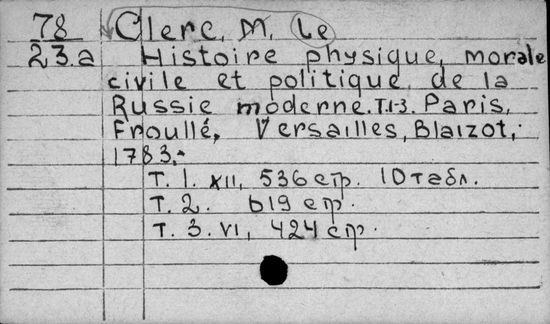 78 Clerc, M. Le
23.a Histoire physique, morale
civile et politique de la
Russie moderne. T.1-3. Paris,
Froullé, Versailles, Blaizot,
1783.-
T. 1. XII, 536 стр. 10 табл.
T. 2. 619 стр.
T. 3. VI, 424 стр.